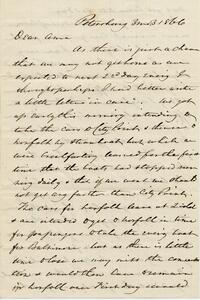 Petersburg 3mo 3 1866
Dear Anna
As there is just a chance
that we may not get home as we
expected to next 2d day evening I
thought perhaps I had better write
a little letter in case. We got
up early this morning intending to
take the cars to City Point & thence to
Norfolk by steamboat, but while we
were breakfasting learned for the first
time that the boats had stopped running
daily & that if we went we should
not get any farther than City Point.
The cars for Norfolk leave at 2 o'clock
& are intended to get to Norfolk in time
for passengers to take the evening boat
for Baltimore but as there is little
time to lose we may miss the connec
tion & would then have to remain
in Norfolk over First day